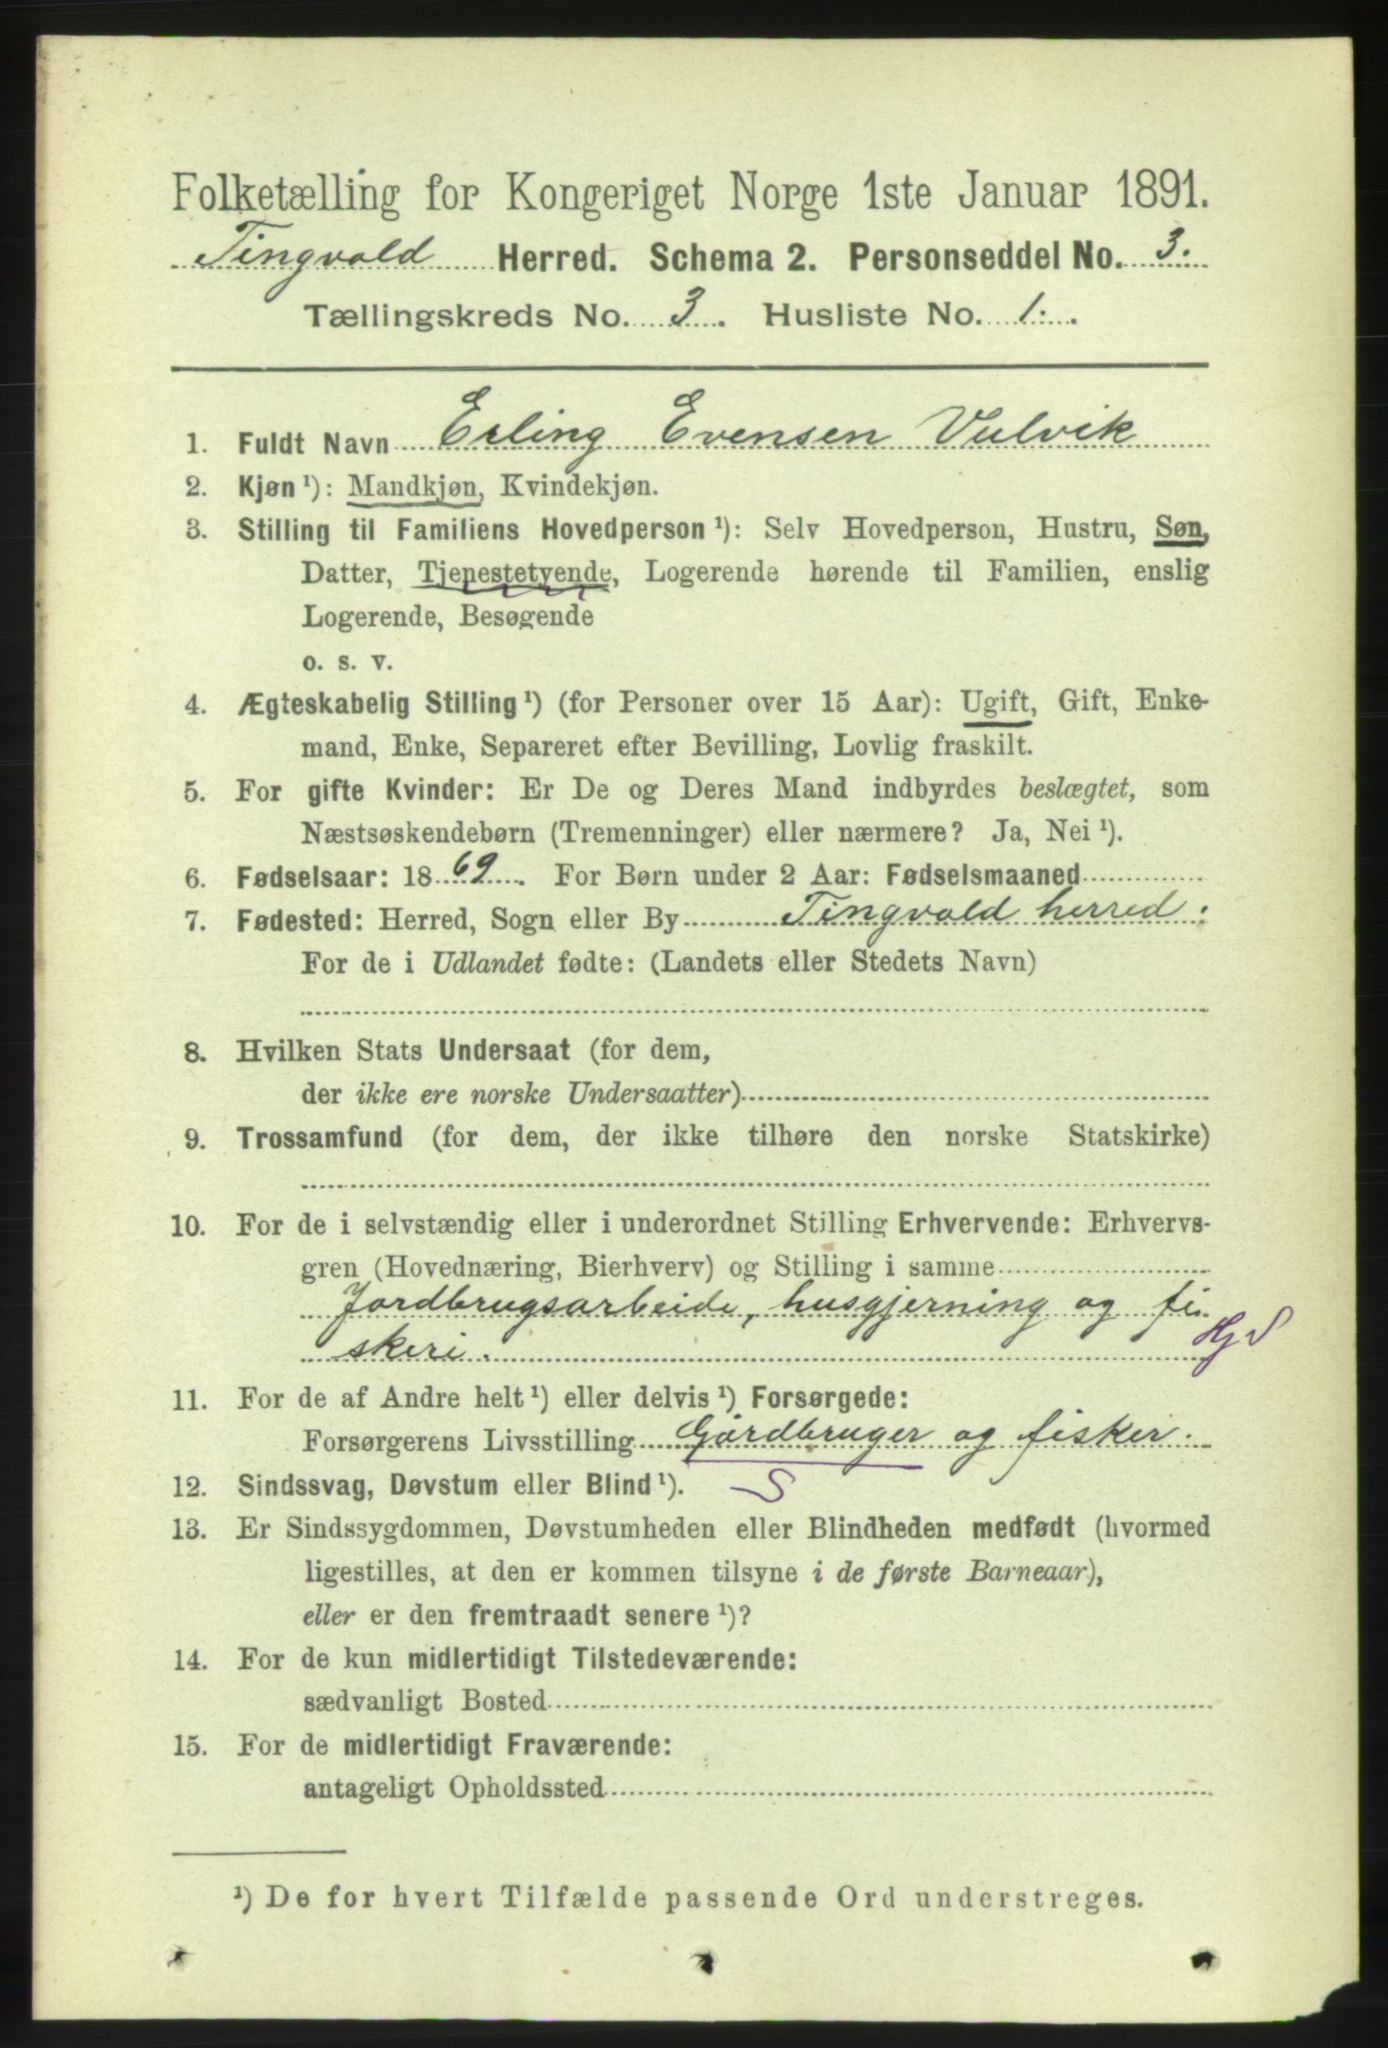 Folketælling for Kongeriget Norge 1ste Januar 1891.
Tingvold Herred. Schema 2. Personseddel No. 3.
Tællingskreds No. 3. Husliste No. 1.
1. Fuldt Navn Erling Evensen Vulvik
2. Kjøn ¹): Mandkjøn, Kvindekjøn.
3. Stilling til Familiens Hovedperson ¹): Selv Hovedperson, Hustru, Søn,
Datter, Tjenestetyende, Logerende hørende til Familien, enslig
Logerende, Besøgende
o. s. v.
4. Ægteskabelig Stilling ¹) (for Personer over 15 Aar): Ugift, Gift, Enke-
mand, Enke, Separeret efter Bevilling, Lovlig fraskilt.
5. For gifte Kvinder: Er De og Deres Mand indbyrdes beslægtet, som
Næstsøskendebørn (Tremenninger) eller nærmere? Ja, Nei ¹).
6. Fødselsaar: 1869. For Børn under 2 Aar: Fødselsmaaned
7. Fødested: Herred, Sogn eller By Tingvold herred.
For de i Udlandet fødte: (Landets eller Stedets Navn)
8. Hvilken Stats Undersaat (for dem,
der ikke ere norske Undersaatter)
9. Trossamfund (for dem, der ikke tilhøre den norske Statskirke)
10. For de i selvstændig eller i underordnet Stilling Erhvervende: Erhvervs-
gren (Hovednæring, Bierhverv) og Stilling i samme
Jordbrugsarbeide, husgjerning og fi-
skeri.
11. For de af Andre helt ¹) eller delvis ¹) Forsørgede:
Forsørgerens Livsstilling Gårdbruger og fisker.
12. Sindssvag, Døvstum eller Blind ¹). S
13. Er Sindssygdommen, Døvstumheden eller Blindheden medfødt (hvormed
ligestilles, at den er kommen tilsyne i de første Barneaar),
eller er den fremtraadt senere ¹)?
14. For de kun midlertidigt Tilstedeværende:
sædvanligt Bosted
15. For de midlertidigt Fraværende:
antageligt Opholdssted
¹) De for hvert Tilfælde passende Ord understreges.